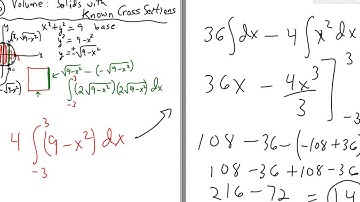 Volume: Solids with
Known Cross Sections
x² + y² = 9 base
y² = 9 - x²
y = ±√(9 - x²)
√(9 - x²) - (-√(9 - x²))
∫₋₃³ (2√(9 - x²))(2√(9 - x²)) dx
4 ∫₋₃³ (9 - x²) dx
36∫dx - 4∫x² dx
36x - 4x³/3 ]₋₃³
108 - 36 - (-108 + 36)
108 - 36 + 108 - 36
216 - 72 =